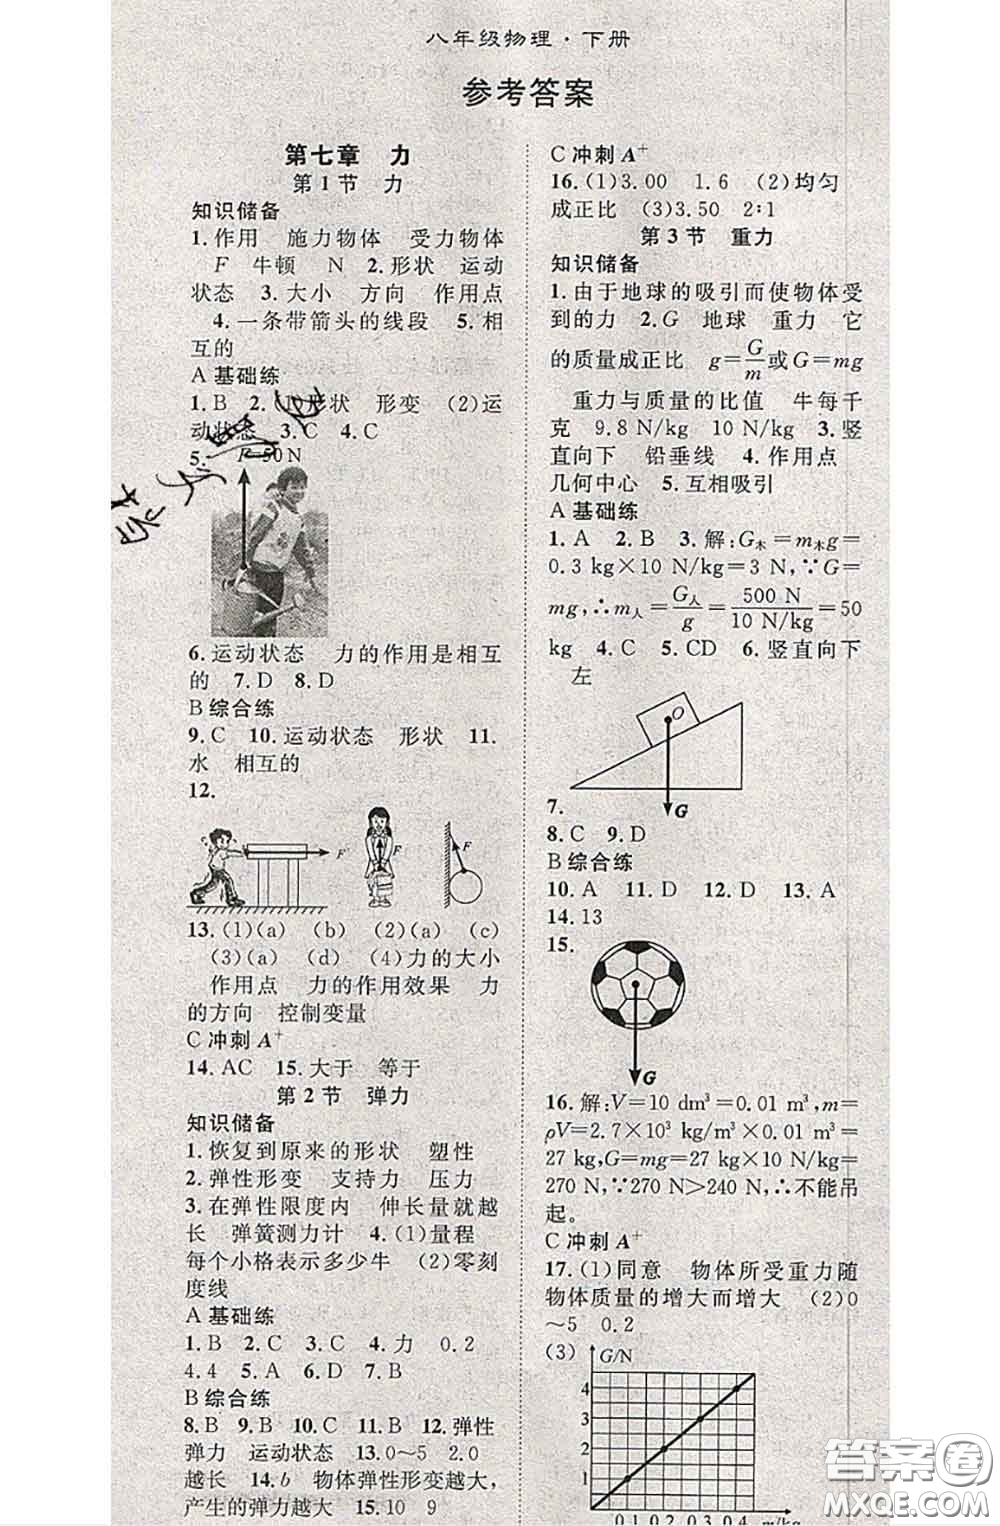 八年级物理·下册
参考答案
第七章 力
第1节 力
知识储备
1.作用 施力物体 受力物体
F 牛顿 N 2.形状 运动
状态 3.大小 方向 作用点
4.一条带箭头的线段 5.相
互的
A 基础练
1.B 2.(1)形状 形变 (2)运
动状态 3.C 4.C
5. F=50N
6.运动状态 力的作用是相互
的 7.D 8.D
B 综合练
9.C 10.运动状态 形状 11.
水 相互的
12.
F F F
13.(1)(a) (b) (2)(a) (c)
(3)(a) (d) (4)力的大小
作用点 力的作用效果 力
的方向 控制变量
C 冲刺A+
14.AC 15.大于 等于
第2节 弹力
知识储备
1.恢复到原来的形状 塑性
2.弹性形变 支持力 压力
3.在弹性限度内 伸长量就越
长 弹簧测力计 4.(1)量程
每个小格表示多少牛 (2)零刻
度线
A 基础练
1.B 2.C 3.C 4.力 0.2
4.4 5.A 6.D 7.A
B 综合练
8.B 9.B 10.C 11.B 12.弹性
弹力 运动状态 13.0～5 2.0
越长 14.b 物体弹性形变越大,
产生的弹力越大 15.10 9
C 冲刺A+
16.(1)3.00 1.6 (2)均匀
成正比 (3)3.50 2∶1
第3节 重力
知识储备
1.由于地球的吸引而使物体受
到的力 2.G 地球 重力 它
的质量成正比 g=G/m或G=mg
重力与质量的比值 牛每千
克 9.8 N/kg 10 N/kg 3.竖
直向下 铅垂线 4.作用点
几何中心 5.互相吸引
A 基础练
1.A 2.B 3.解:G木=m木g=
0.3 kg×10 N/kg=3 N,∵G=
mg,∴m人=G人/g=500 N/10 N/kg=50
kg 4.C 5.CD 6.竖直向下
左
O
7. G
8.C 9.D
B 综合练
10.A 11.D 12.D 13.A
14.13
15.
G
16.解:V=10 dm³=0.01 m³,m=
ρV=2.7×10³ kg/m³×0.01 m³=
27 kg,G=mg=27 kg×10 N/kg=
270 N,∵270 N>240 N,∴不能吊
起。
C 冲刺A+
17.(1)同意 物体所受重力随
物体质量的增大而增大 (2)0
～5 0.2
(3) G/N
4
3
2
1
0 0.1 0.2 0.3 0.4 m/kg
答案圈
MXQE.COM